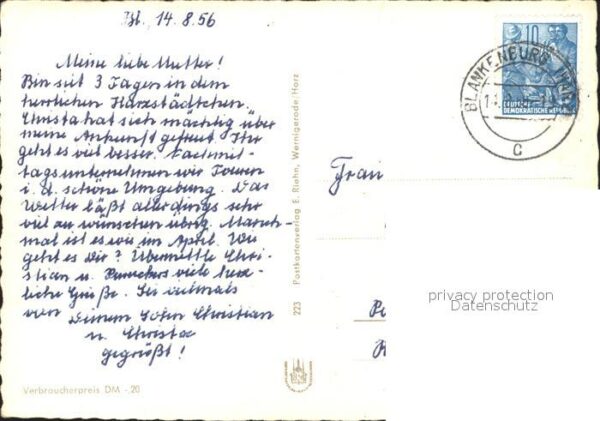 Bl. 14.8.56
Meine liebe Mutter!
Bin seit 3 Tagen in dem
herrlichen Harzstädtchen.
Christa hat sich mächtig über
meine Ankunft gefreut. Ihr
geht es viel besser. Nachmit-
tags unternehmen wir Touren
i. d. schöne Umgebung. Das
Wetter läßt allerdings sehr
viel zu wünschen übrig. Manch-
mal ist es wie im April. Wie
geht es Dir? Übermittle Chri-
stian u. viele herz-
liche Grüße. Sei vielmals
von Deinem Sohn Christian
u. Christa
gegrüßt!
Verbraucherpreis DM -.20
223 Postkartenverlag E. Riehn, Wernigerode/Harz
10
DEUTSCHE
DEMOKRATISCHE
BLANKENBURG
C
Frau
privacy protection
Datenschutz